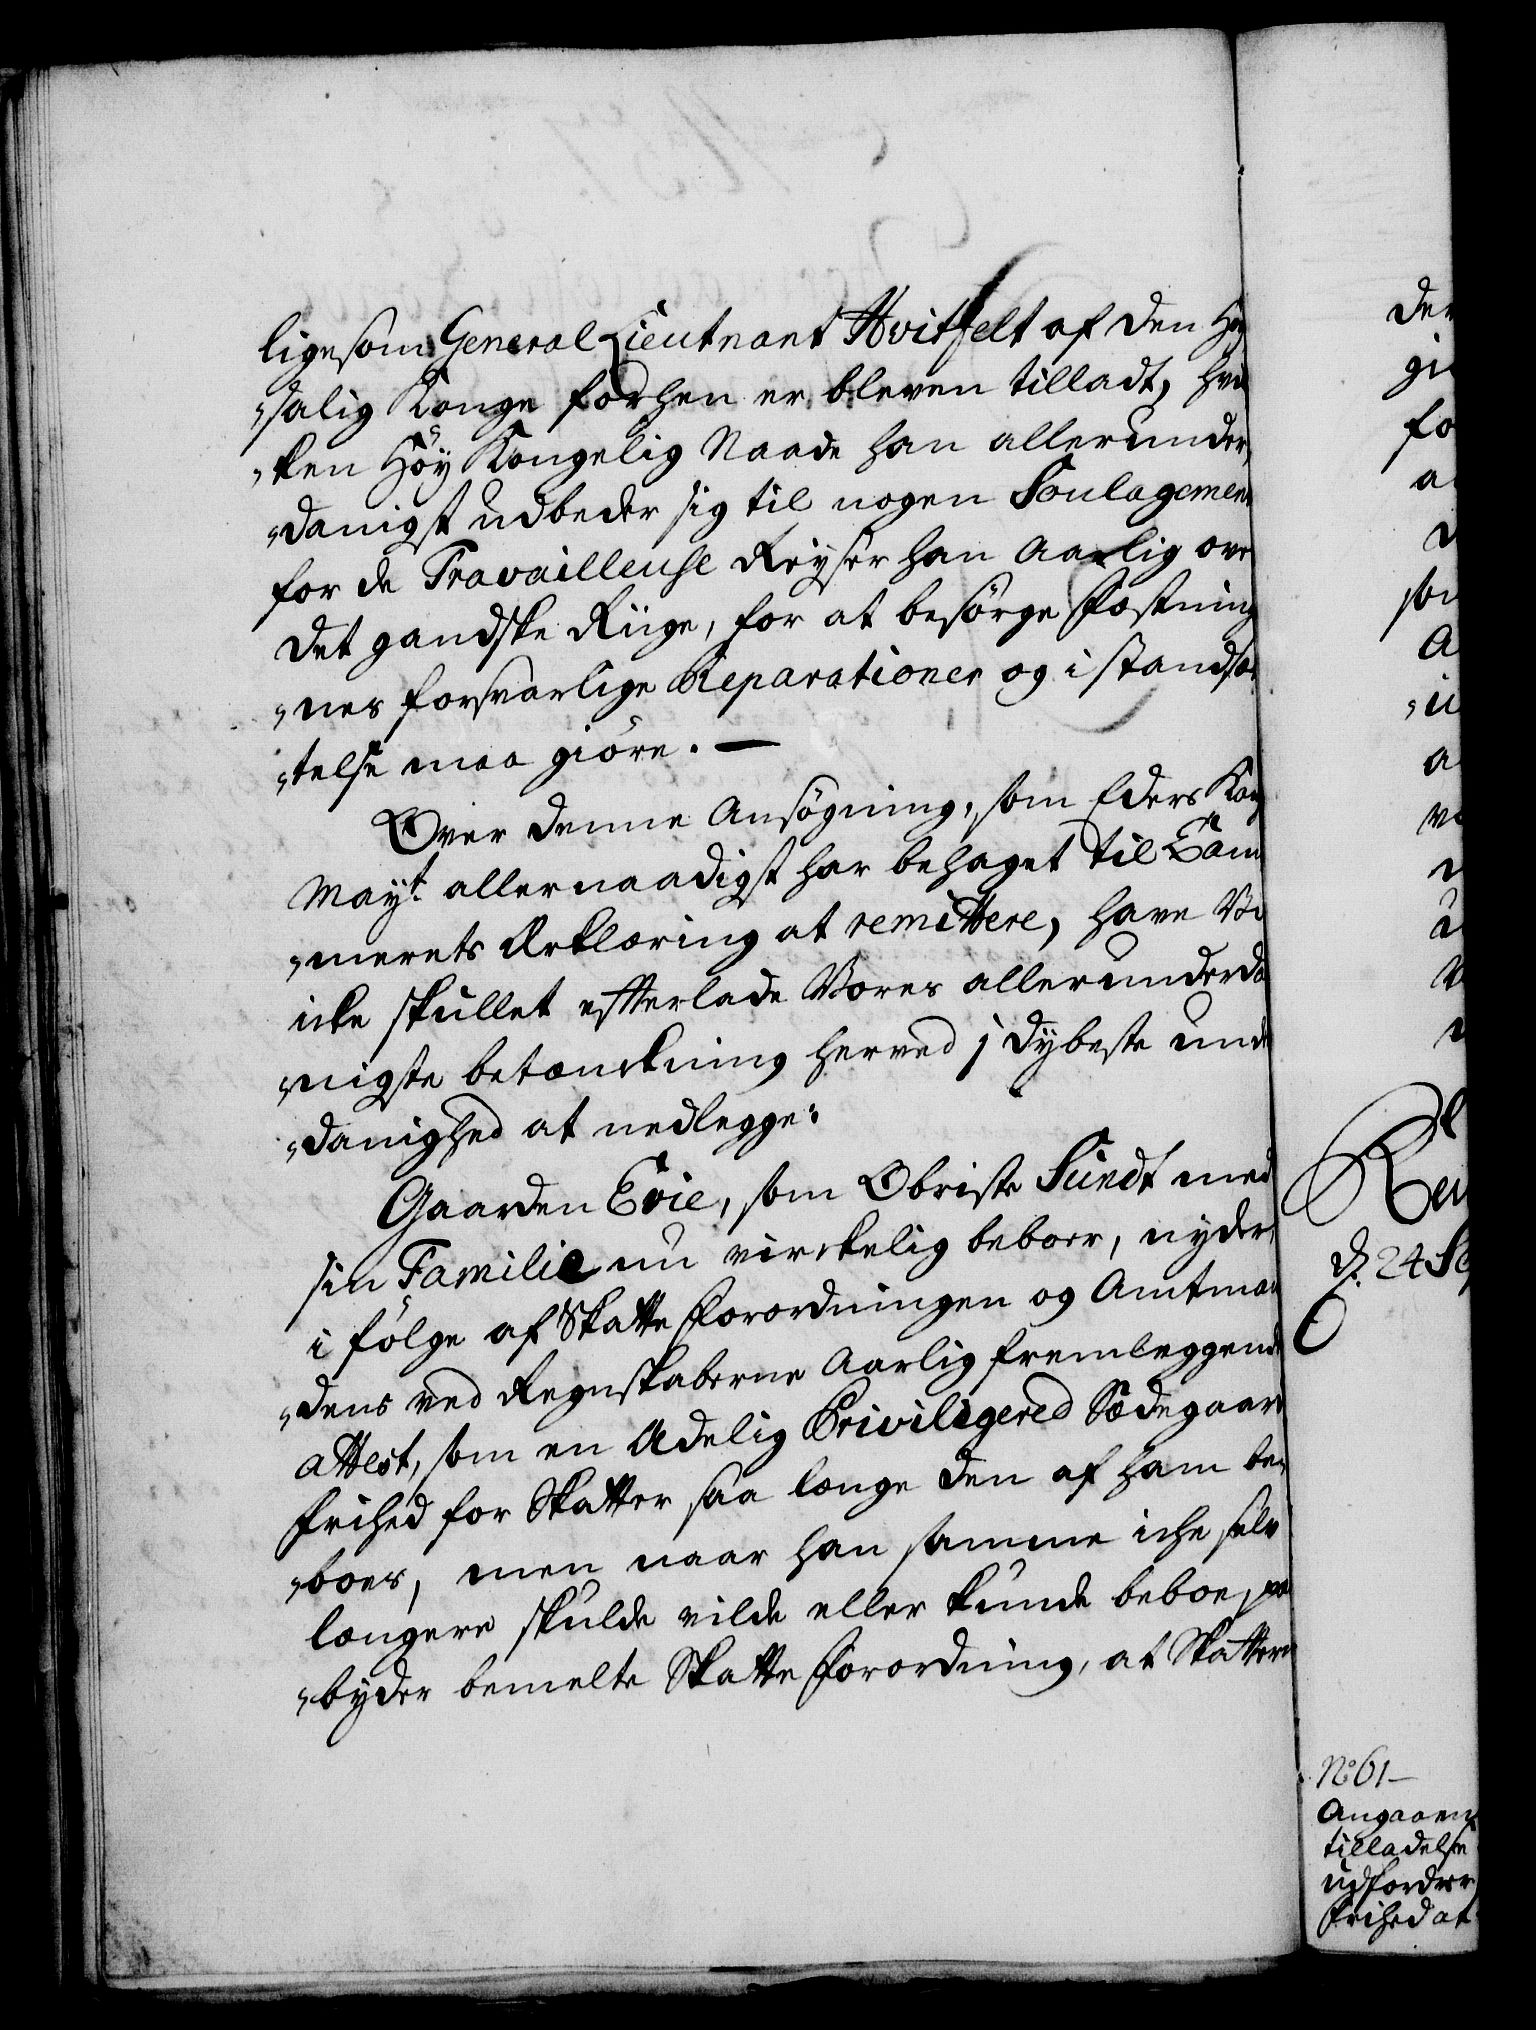 ligesom General Lieutnant Hvitfelt af den Høy
„salig Konge forhen er bleven tilladt, hvil
„ken Høy Kongelig Naade han allerunder„
„danigst udbeder sig til nogen Soulagement
for de Travailleuse Reyser han Aarlig over
det gandske Riige, for at besörge Fæstning
„nes forsvarlige Reparationer og istandsæt
„telse maa giöre. —
Over denne Ansögning, som Eders Kong
Mayt. allernaadigst har behaget til Cam
„merets Erklæring at remittere, have Vi
icke skullet efterlade Vores allerunderda
„nigste betænckning herved i dybeste und
„danighed at nedlegge:
Gaarden Evie, som Obriste Sundt med
sin Familie nu virckelig beboer, nyder,
i følge af Skatte Forordningen og Amtman
„dens ved Regnskaberne Aarlig fremleggende
attest, som en Adelig Privilegered Sædegaard
frihed for Skatter saa længe den af ham be„
„boes, men naar han samme iche selv
længere skulde vilde eller kunde beboe, paa
„byder bemelte Skatte Forordning, at Skattern
Der
gi
fo
a
son
A
„u
a
Ren
d. 24 Sep
No 61 —
Angaaen
tilladelse
udforder
frihed at